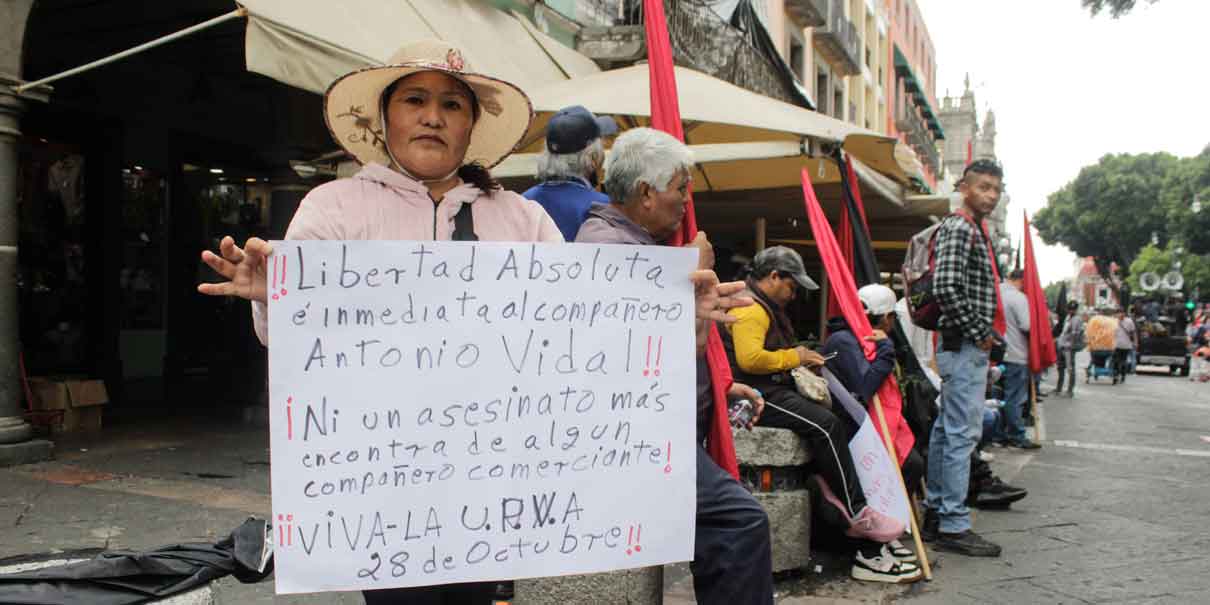 !! Libertad Absoluta
é inmediata al compañero
Antonio Vidal!!
¡Ni un asesinato más
encontra de algun
compañero comerciante!
¡¡VIVA-LA U.P.V.A
28 de Octubre!!